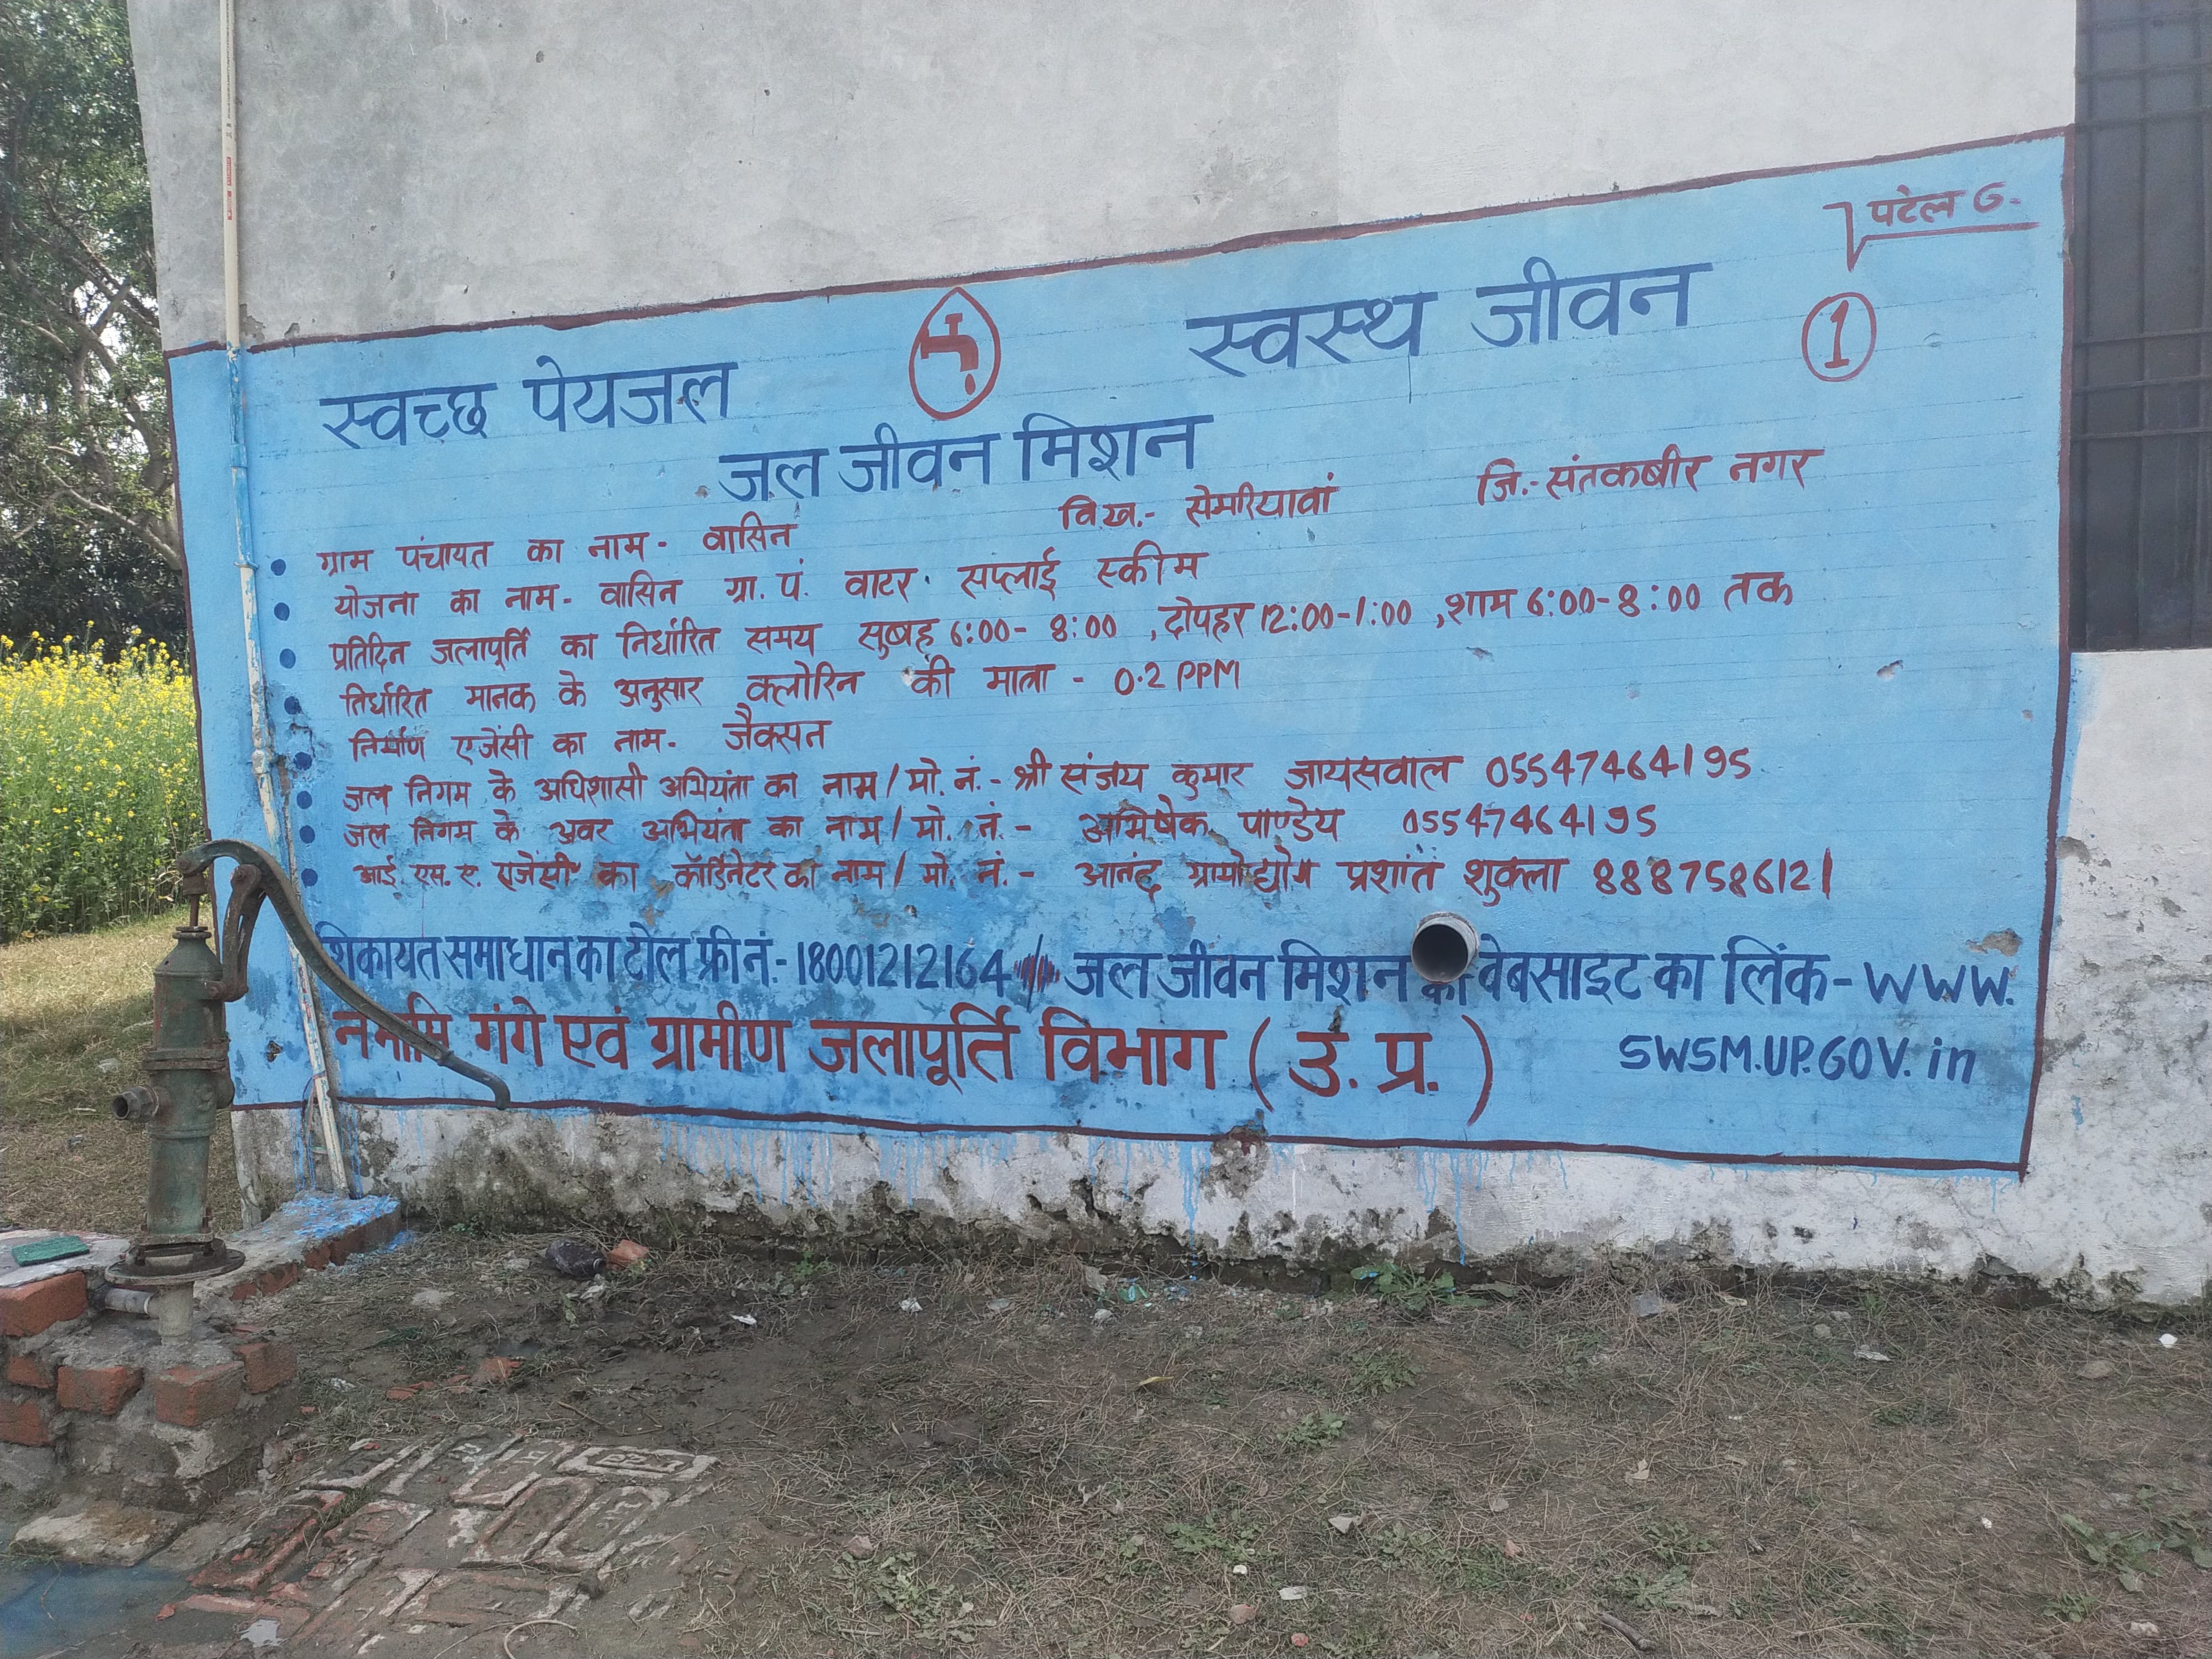 पटेल G.
स्वच्छ पेयजल स्वस्थ जीवन 1
जल जीवन मिशन
ग्राम पंचायत का नाम - वासिन वि.ख.- सेमरियावां जि.- संतकबीर नगर
योजना का नाम - वासिन ग्रा. पं. वाटर सप्लाई स्कीम
प्रतिदिन जलापूर्ति का निर्धारित समय सुबह 6:00- 8:00 ,दोपहर 12:00-1:00 ,शाम 6:00-8:00 तक
निर्धारित मानक के अनुसार क्लोरिन की मात्रा - 0.2 PPM
निर्माण एजेंसी का नाम - जैक्सन
जल निगम के अधिशासी अभियंता का नाम / मो. नं. - श्री संजय कुमार जायसवाल 05547464195
जल निगम के अवर अभियंता का नाम / मो. नं. - अभिषेक पाण्डेय 05547464195
आई. एस. ए. एजेंसी का कॉर्डिनेटर का नाम / मो. नं. - आनंद ग्रामोद्योग प्रशांत शुक्ला 8887586121
शिकायत समाधान का टोल फ्री नं.- 18001212164 // जल जीवन मिशन की वेबसाइट का लिंक - WWW.
SWSM.UP.GOV.in
नमामि गंगे एवं ग्रामीण जलापूर्ति विभाग ( उ. प्र. )